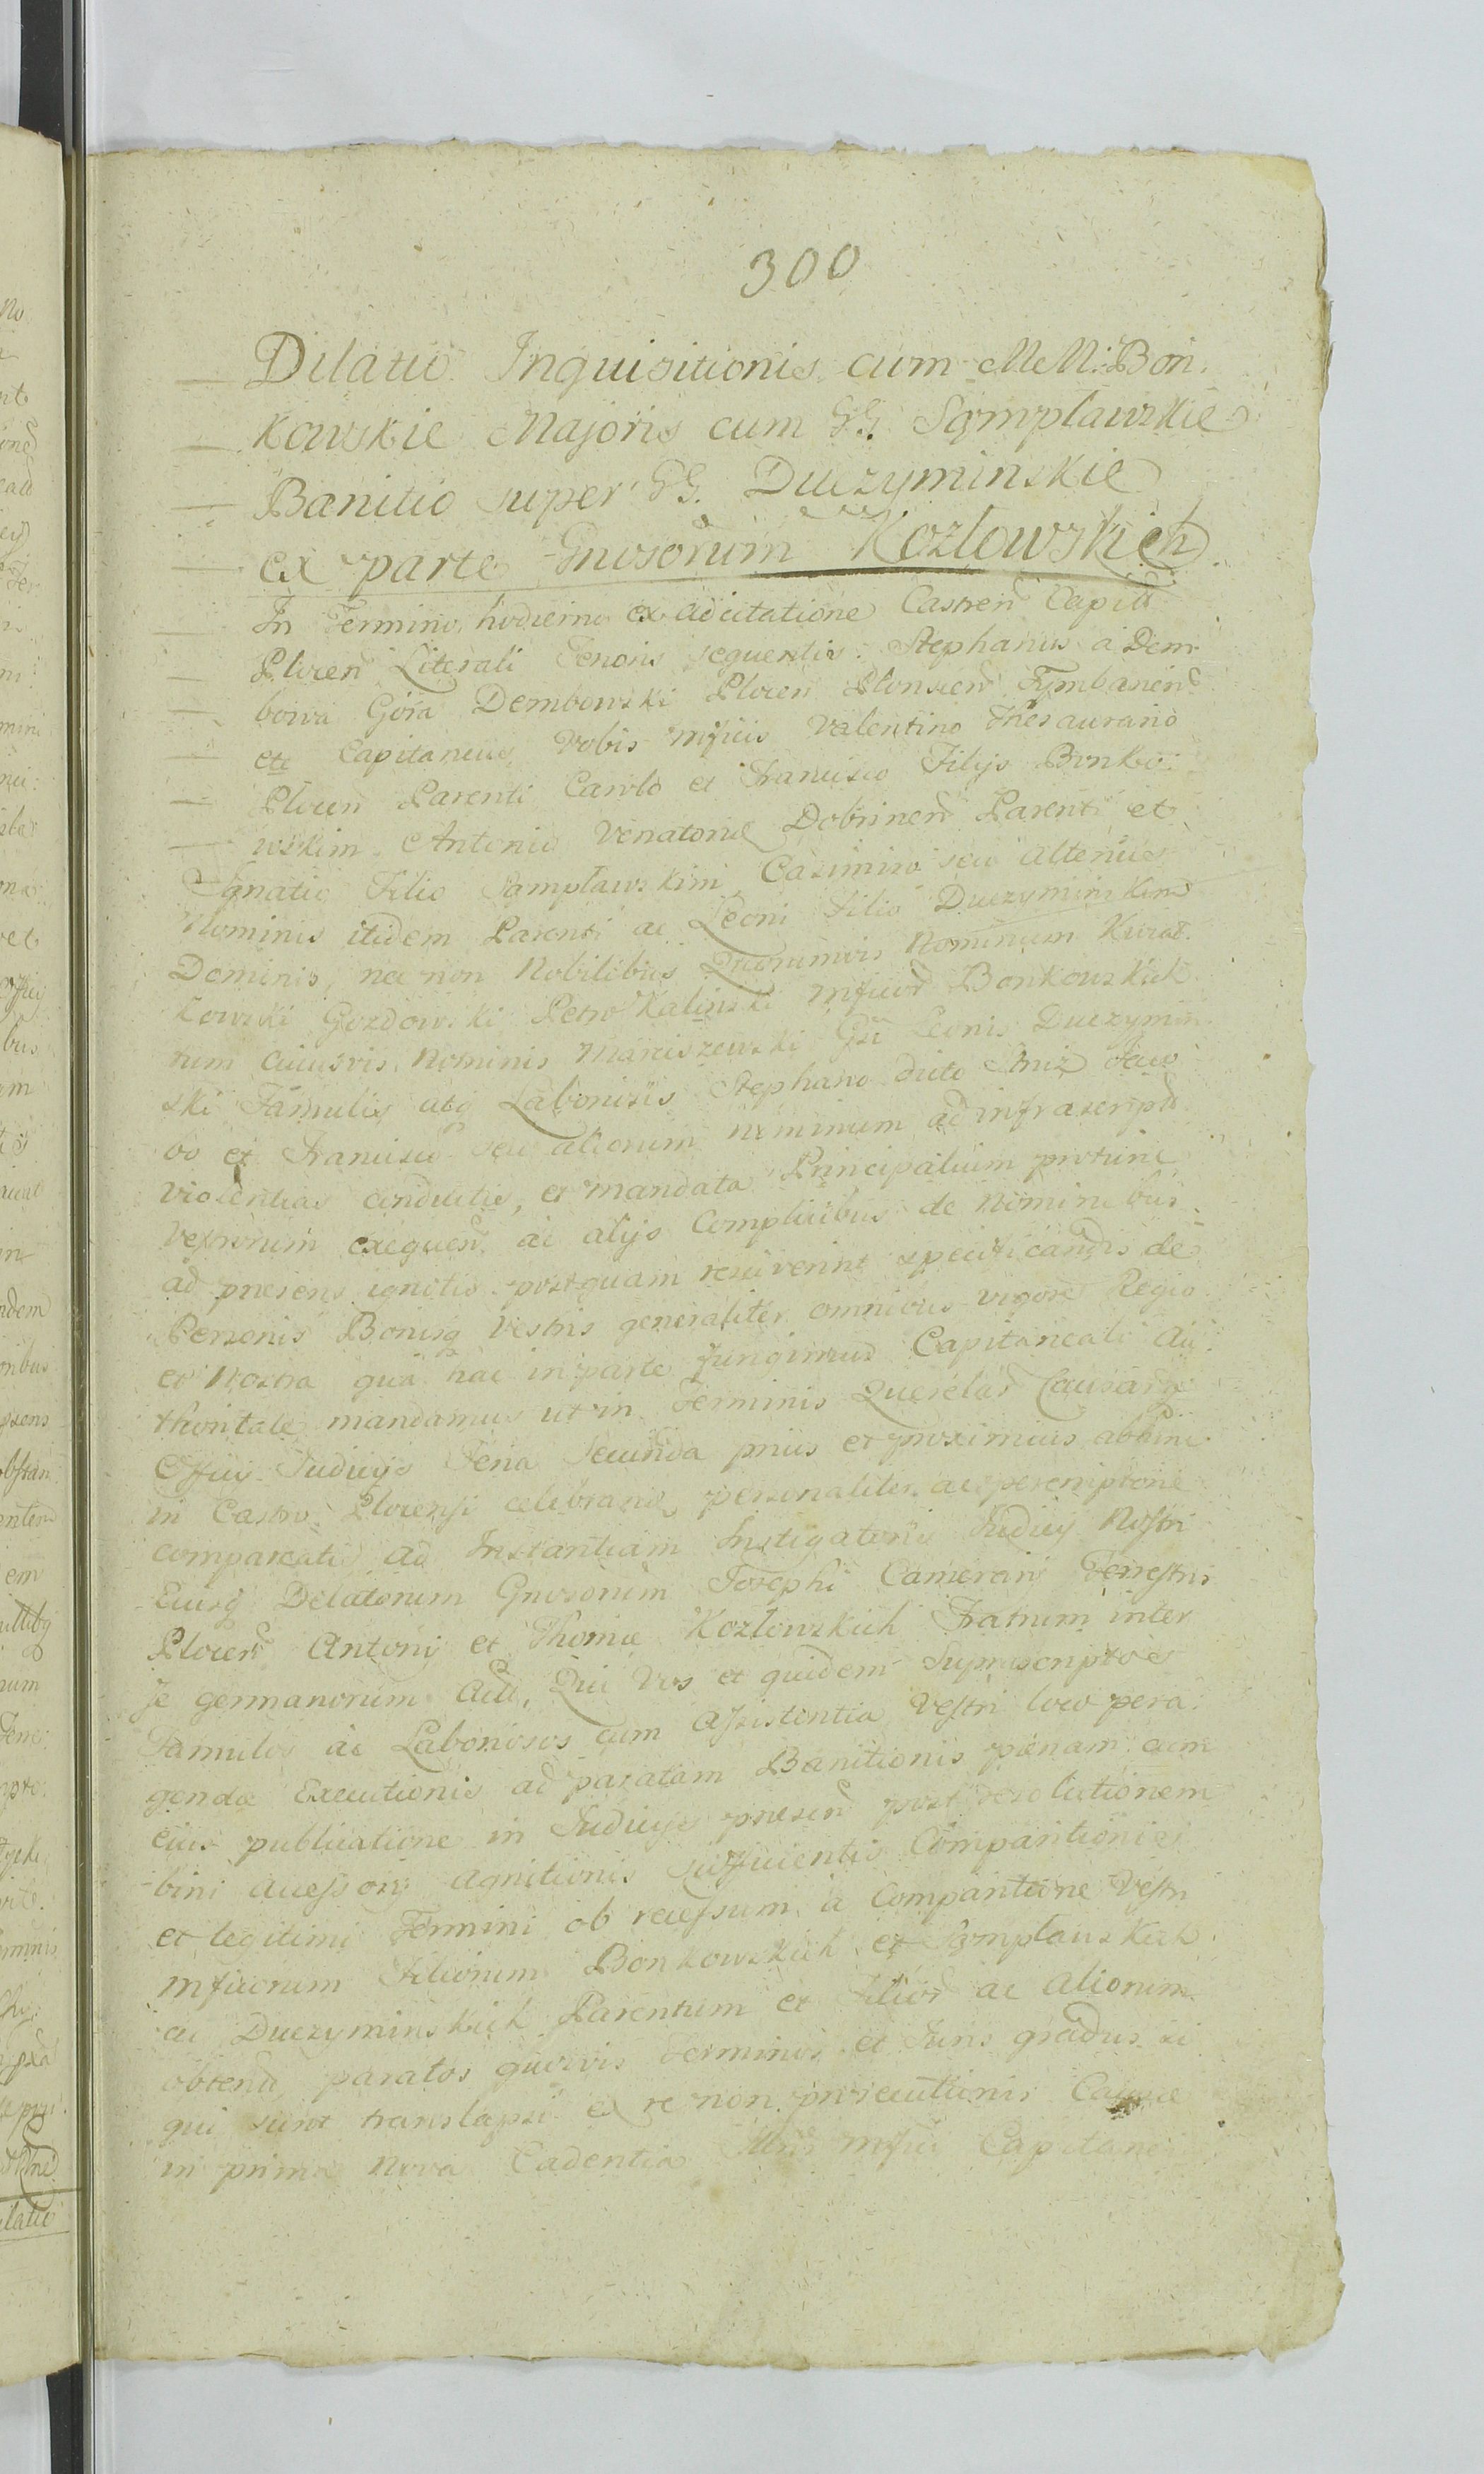 300
Dilatio Inquisitionis cum MM: Bon.
kowskie Majoris cum GG. Sąmpławskie
Banitio super GG. Duczyminskie
ex parte Gnosorum Kozlowskich
In Termino hodierno ex adcitatione Castren Capitli
Plocen Literali Tenoris sequentis. Stephanus a Dem-
bowa Góra Dembowski Plocen Plonscen Tymbarien
etc Capitaneus, Vobis Mficis Valentino Thesaurario
Plocen Parenti Carolo et Francisco Filijs Bonko:
wskim Antonio Venatori Dobrinen Parenti et
Ignatio Filio Sąmpławskim, Casimiro seu alterius
Nominis itidem Parenti ac Leoni Filio Duczyminskim
Dominis, nec non Nobilibus Quorumvis Nominum Kurat.
kowski Gozdowski Petro Kalinski Mficor Bonkowskich
tum cuiusvis Nominis Marciszewski Gsi Leonis Duczymin
ski Famulis atq Laboriosis Stephano dicto Stróż Jaco
bo et Francisco seu aliorum nominum ad infrascript
violentias conductis, et mandata Principalium protunc
Vestrorum exequen ac alijs Complicibus de Nominibus
ad presens ignotis postquam resciverint specificandis de
Personis Bonisq Vestris generaliter omnibus vigore Regia
et Nostra quâ hac in parte fungimur Capitaneali Au
thoritate mandamus ut in Terminis Querelar Causarq
Officij Judicijs Feria Secunda prius et proximius abhinc
in Castro Plocensi celebrand, personaliter ac peremptorie
compareatis ad Instantiam Instigatoris Judicij Nostri
Eiusq Delatorum Gnosorum Josephi Camerarii Terrestris
Plocen Antonij et Thomæ Kozlowskich Fratrum inter
se germanorum Act, Qui Vos et quidem Suprascriptos
Famulos ac Laboriosos cum Assistentia Vestri loco pera:
gendæ Executionis ad paratam Banitionis pœnam cum
eius publicatione in Judicijs presen post resolutionem
bini accessorij agnitionis sufficientis Comparitionis
et legitimi Termini ob recessum a Comparitione Vestri
Mficorum Filiorum Bonkowskich et Sąmpławskich
ac Duczyminskich Parentum et Filior ac aliorum
obtentu paratos quosvis Terminos et Juris gradus si
qui sunt translapsi ex re non prosecutionis Causæ
in prima Nova Cadentia Mficj Capitanei